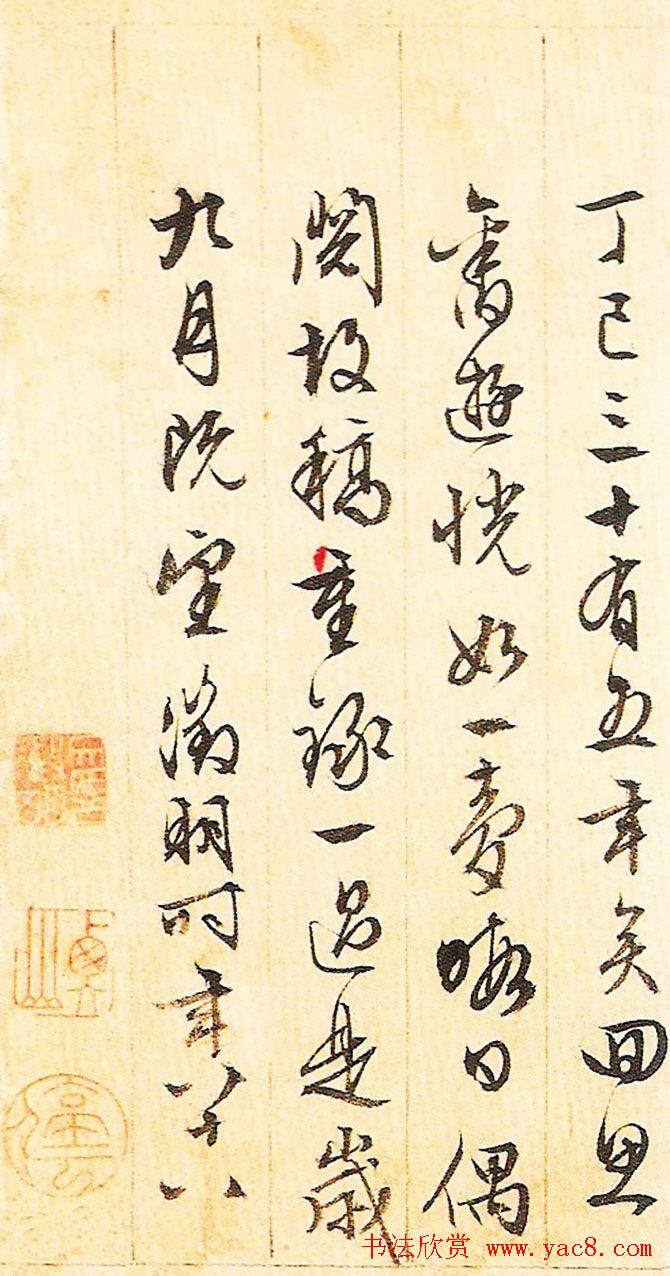 丁巳三十有五年矣回思
舊遊恍如一夢暇日偶
閱故稿重錄一過是歲
九月既望徵明時年八十八
书法欣赏 www.yac8.com